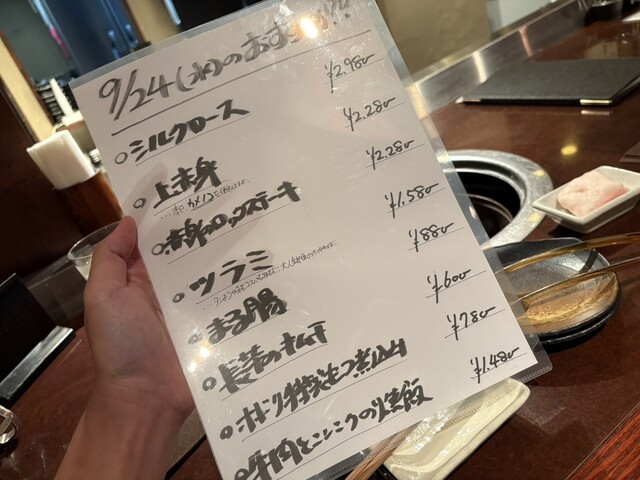 9/24(水)のおすすめ!!
○シルクロース ¥2.980
○上赤身 ¥2.280
○赤身のロックステーキ ¥2.280
○ツラミ ¥1.580
○まる腸 ¥880
○長芋のキムチ ¥600
○ホドリ特製もつ煮込み ¥780
○牛肉とニンニクの炒飯 ¥1.480